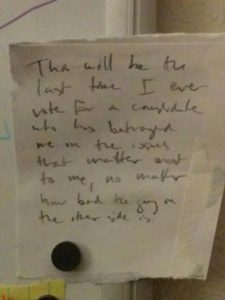 This will be the
last time I ever
vote for a candidate
who has betrayed
me on the issues
that matter most
to me, no matter
how bad the guy on
the other side is.